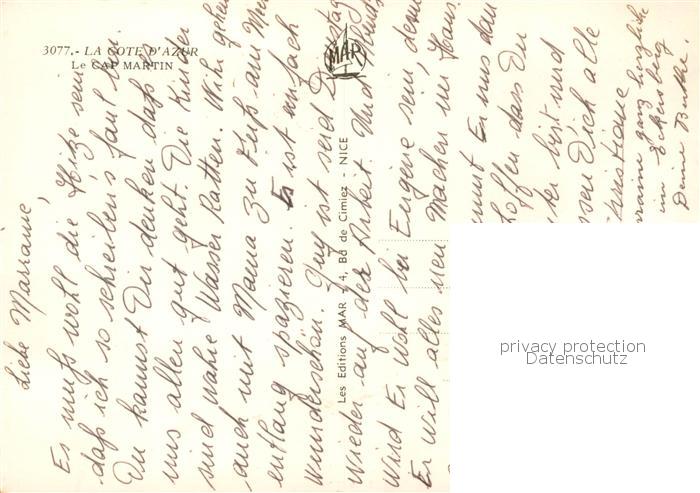 3077. - LA COTE D'AZUR
Le CAP MARTIN
MAR
Les Editions MAR - 4, Bd de Cimiez - NICE
Liebe Marianne,
Es muß wohl die Hitze sein
daß ich so schreibens faul bin.
Du kannst Dir denken daß
uns allen gut geht. Die Kinder
sind wahre Wasser Ratten. Wihr gehen
auch mit Mama zu Fuß am
entlang spazieren. Es ist einfach
Wunderschön. Guy ist seid
wieder auf der Arbeit. Und
Wird Er wohl bei Eugène sein denn
Er will alles neu Machen im Haus.
Er uns dem
hoffen dass Du
bist und
Dich alle
Christiane
ganz herzliche
im
Deine
privacy protection
Datenschutz